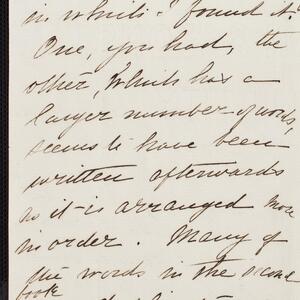 in which I found it.
One, you had, the
other, which has a
larger number of words,
seems to have been
written afterwards
as it is arranged more
in order. Many of
the words in the second
book